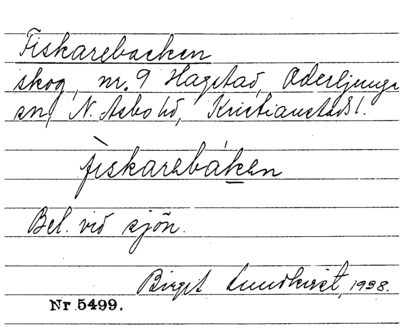 Fiskarebacken
skog, nr. 9 Hagstad, Oderljunga
sn, N. Åsbo hd, Kristianstads l.
fìskarebáken
Bel. vid sjön.
Birgit Lundkvist, 1938.
Nr 5499.